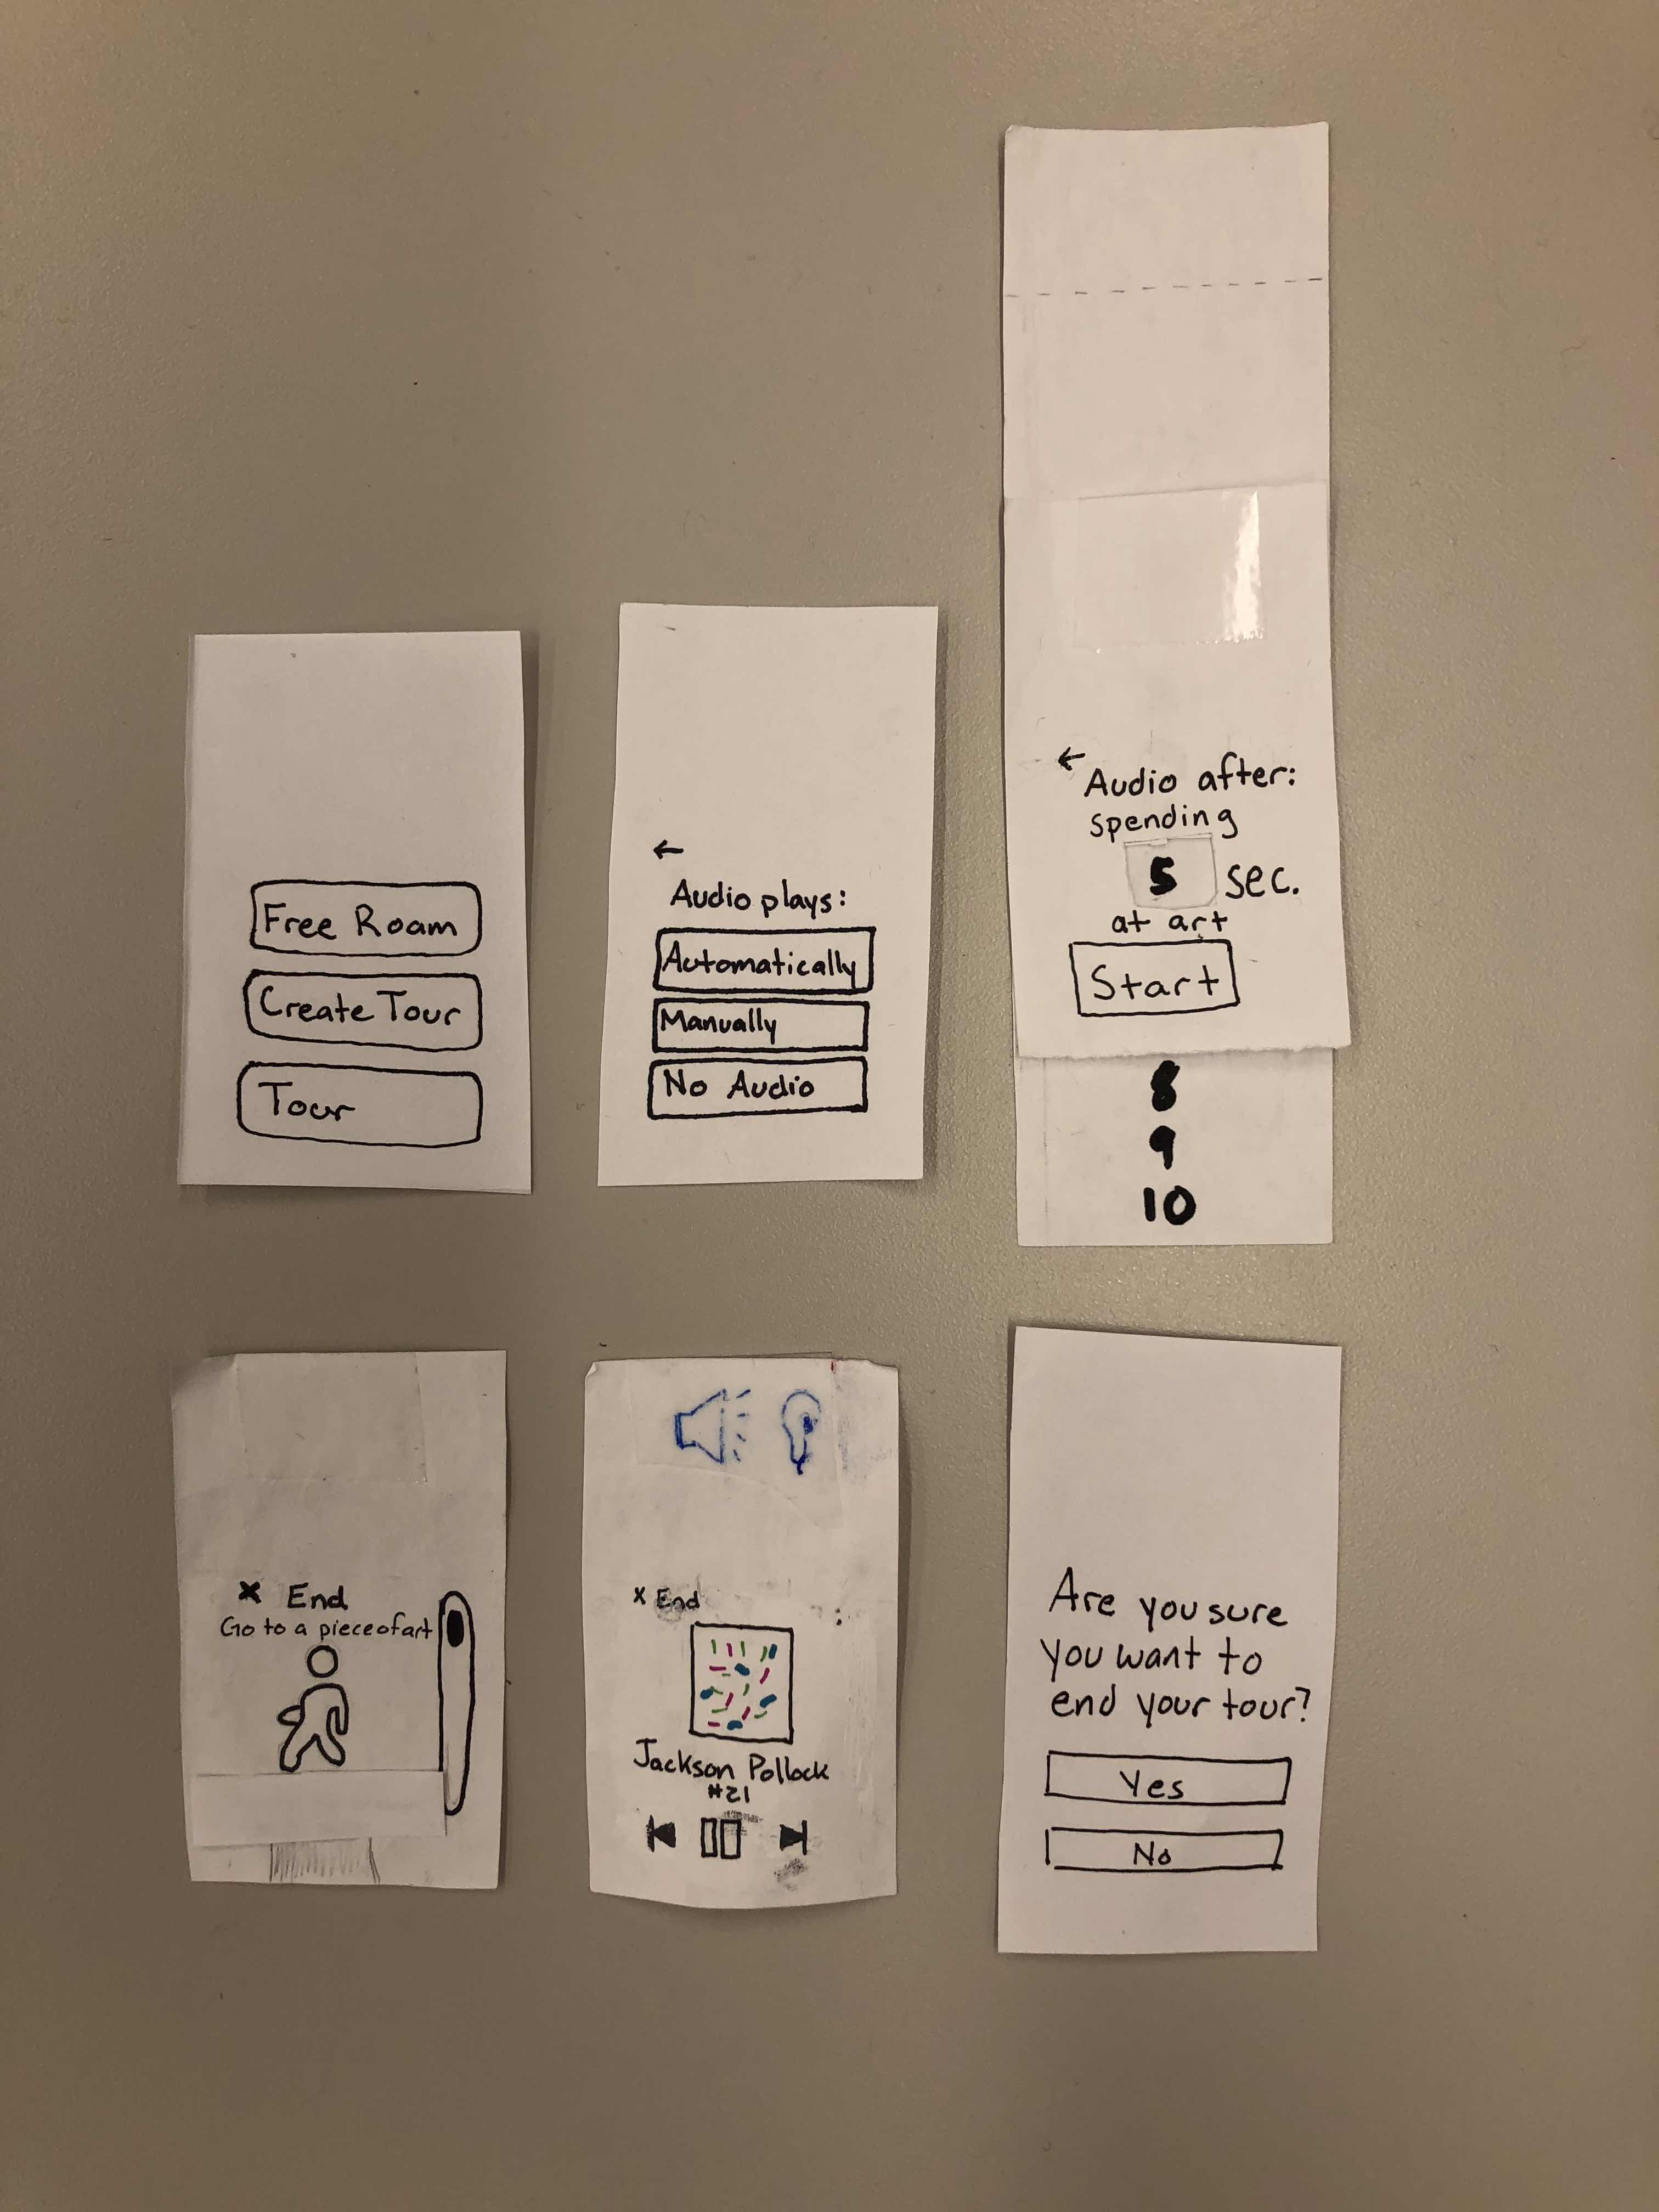 Free Roam
Create Tour
Tour
←
Audio plays:
Automatically
Manually
No Audio
←
Audio after:
spending
5 sec.
at art
Start
8
9
10
x End
Go to a piece of art
x End
:
Jackson Pollock
#21
Are you sure
you want to
end your tour?
Yes
No